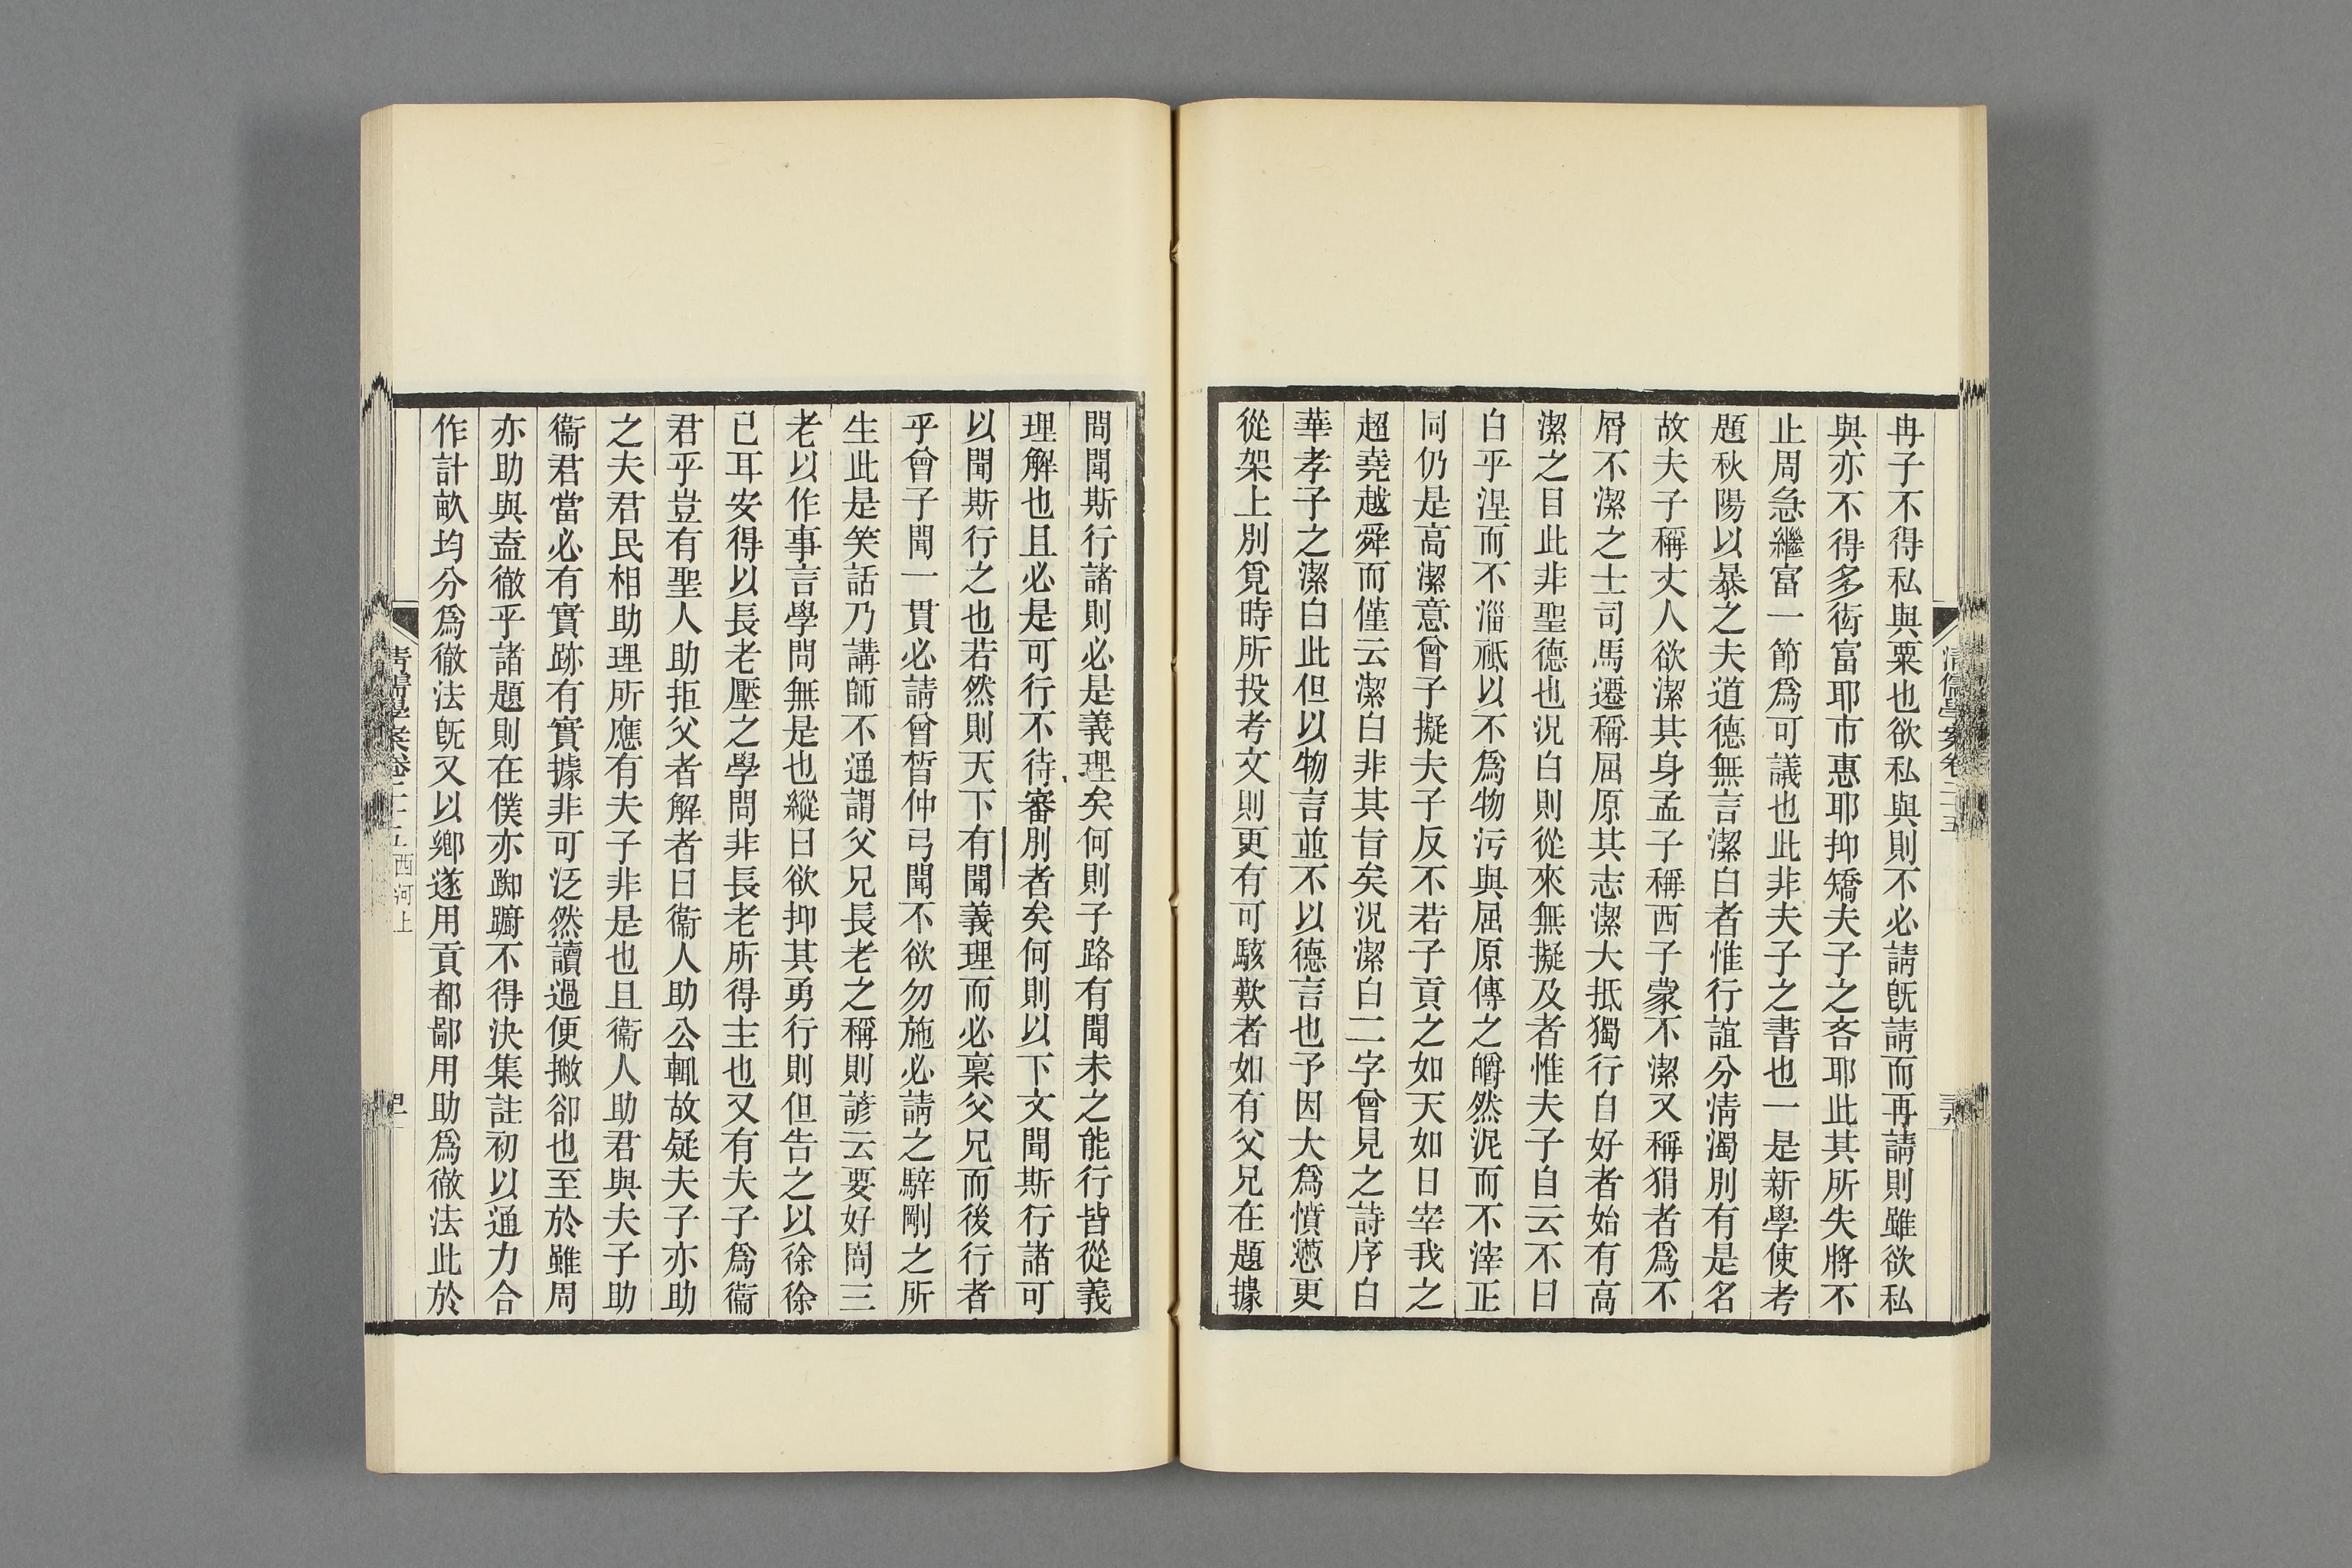 清儒學案卷二十五
三九
冉子不得私與粟也欲私與則不必請旣請而再請則雖欲私
與亦不得多衒富耶市惠耶抑矯夫子之吝耶此其所失將不
止周急繼富一節爲可議也此非夫子之書也一是新學使考
題秋陽以暴之夫道德無言潔白者惟行誼分淸濁別有是名
故夫子稱丈人欲潔其身孟子稱西子蒙不潔又稱狷者爲不
屑不潔之士司馬遷稱屈原其志潔大抵獨行自好者始有高
潔之目此非聖德也況白則從來無擬及者惟夫子自云不曰
白乎涅而不淄祗以不爲物污與屈原傳之皭然泥而不滓正
同仍是高潔意曾子擬夫子反不若子貢之如天如日宰我之
超堯越舜而僅云潔白非其旨矣況潔白二字曾見之詩序白
華孝子之潔白此但以物言並不以德言也予因大爲憤懣更
從架上別覓時所投考文則更有可駭歎者如有父兄在題據
問聞斯行諸則必是義理矣何則子路有聞未之能行皆從義
理解也且必是可行不待審別者矣何則以下文聞斯行諸可
以聞斯行之也若然則天下有聞義理而必稟父兄而後行者
乎曾子聞一貫必請曾晳仲弓聞不欲勿施必請之騂剛之所
生此是笑話乃講師不通謂父兄長老之稱則諺云要好問三
老以作事言學問無是也縱曰欲抑其勇行則但告之以徐徐
已耳安得以長老壓之學問非長老所得主也又有夫子爲衞
君乎豈有聖人助拒父者解者曰衞人助公輒故疑夫子亦助
之夫君民相助理所應有夫子非是也且衞人助君與夫子助
衞君當必有實跡有實據非可泛然讀過便撇卻也至於雖周
亦助與盍徹乎諸題則在僕亦踟躕不得決集註初以通力合
作計畝均分爲徹法旣又以鄉遂用貢都鄙用助爲徹法此於
五西河上